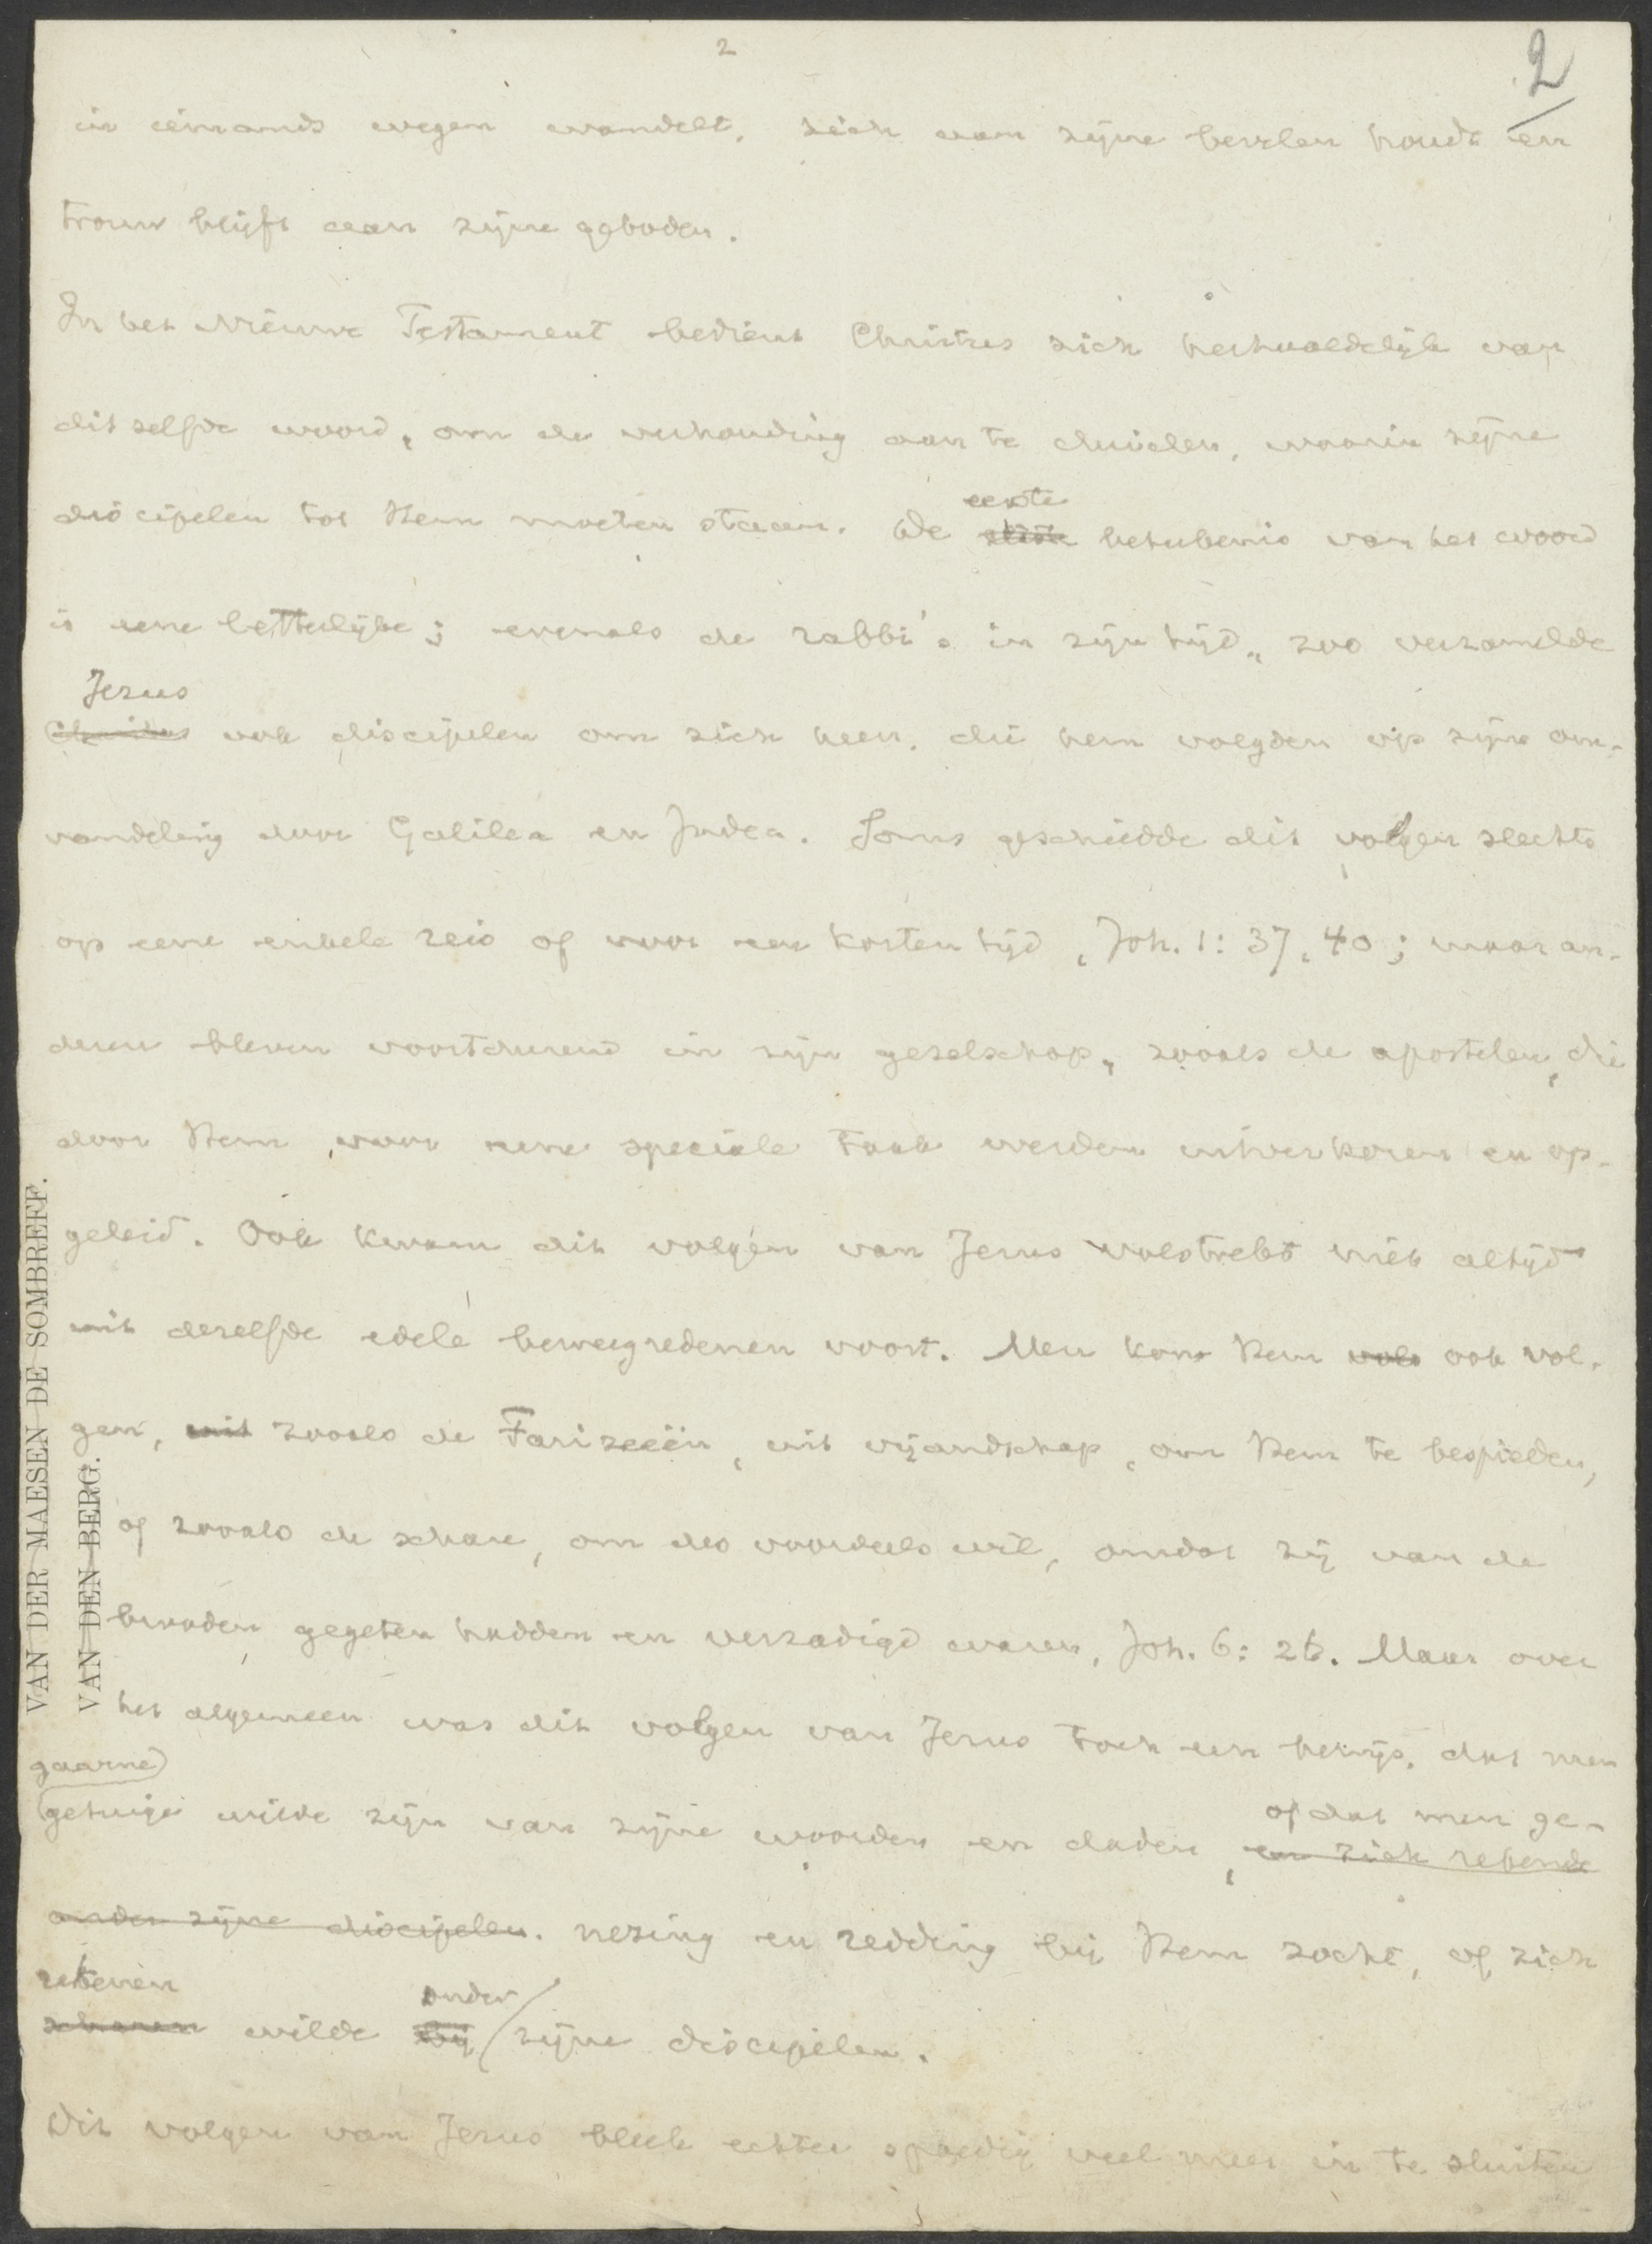 2
2
in iemands wegen wandelt, zich aan zijne bevelen houdt en
trouw blijft aan zijne geboden.
In het Nieuwe Testament bedient Christus zich herhaaldelijk van
ditzelfde woord, om de verhouding aan te duiden, waarin zijne
eerste
discipelen tot Hem moeten staan. De beteekenis van het woord
is eene letterlijke; evenals de rabbi's in zijn tijd, zoo verzamelde
Jezus
Christus ook discipelen om zich heen, die hem volgden op zijne om-
wandeling door Galilea en Judea. Soms geschiedde dit volgen slechts
op eene enkele reis of voor een korten tijd, Joh. 1: 37, 40; maar an-
deren bleven voortdurend in zijn gezelschap, zooals de apostelen, die
door Hem voor eene speciale taak werden uitverkoren en op-
geleid. Ook kwam dit volgen van Jezus volstrekt niet altijd
uit dezelfde edele beweegredenen voort. Men kon Hem ook vol-
gen, uit zooals de Farizeën, uit vijandschap, om Hem te bespieden,
of zooals de schare, om des voordeels wil, omdat zij van de
brooden gegeten hadden en verzadigd waren, Joh. 6: 26. Maar over
het algemeen was dit volgen van Jezus toch een bewijs, dat men
gaarne
getuige wilde zijn van zijne woorden en daden, en zich rekende
of dat men ge-
onder zijne discipelen. nezing en redding bij Hem zocht, of zich
rekenen onder
scharen wilde bij zijne discipelen.
Dit volgen van Jezus bleek echter spoedig veel meer in te sluiten
VAN DER MAESEN DE SOMBREFF.
VAN DEN BERG.